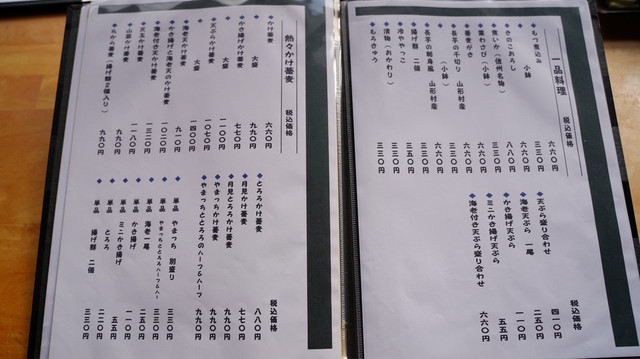 一品料理 税込価格
◆もつ煮込み 六六〇円
小鉢 三三〇円
◆きのこおろし 六六〇円
◆煮いか（信州名物） 八八〇円
◆葉わさび（小鉢） 六六〇円
◆蕎麦がき 六六〇円
◆長芋の千切り 山形村産 三三〇円
（小鉢） 三三〇円
◆長芋の刺身風 山形村産 六六〇円
◆揚げ餅 二個 三三〇円
◆冷やっこ 五五〇円
◆漬物（おかわり） 三三〇円
◆もろきゅう 三三〇円
税込価格
◆天ぷら盛り合わせ 四一〇円
◆海老天ぷら 一尾 二五〇円
◆かき揚げ天ぷら 一一〇円
◆ミニかき揚げ天ぷら 五五円
◆海老付き天ぷら盛り合わせ 六六〇円
熱々かけ蕎麦 税込価格
◆かけ蕎麦 六六〇円
大盛 九九〇円
◆かき揚げかけ蕎麦 七七〇円
大盛 一一〇〇円
◆天ぷらかけ蕎麦 一〇七〇円
大盛 一四〇〇円
◆海老天かけ蕎麦 九一〇円
◆かき揚げと海老天のかけ蕎麦 一〇二〇円
◆海老付き天かけ蕎麦 一三二〇円
◆天玉かけ蕎麦 一一八〇円
◆山菜かけ蕎麦 九九〇円
◆ちから蕎麦（揚げ餅２個入り） 九九〇円
税込価格
◆とろろかけ蕎麦 八八〇円
◆月見かけ蕎麦 七七〇円
◆月見とろろかけ蕎麦 九九〇円
◆やまっちかけ蕎麦 九九〇円
◆やまっちととろろのハーフ&ハーフ 九九〇円
◆単品 やまっち 別盛り 三三〇円
◆単品 やまっちととろろハーフ&ハーフ 三三〇円
◆単品 海老一尾 二五〇円
◆単品 かき揚げ 一一〇円
◆単品 ミニかき揚げ 五五円
◆単品 とろろ 二二〇円
◆単品 揚げ餅 二個 三三〇円